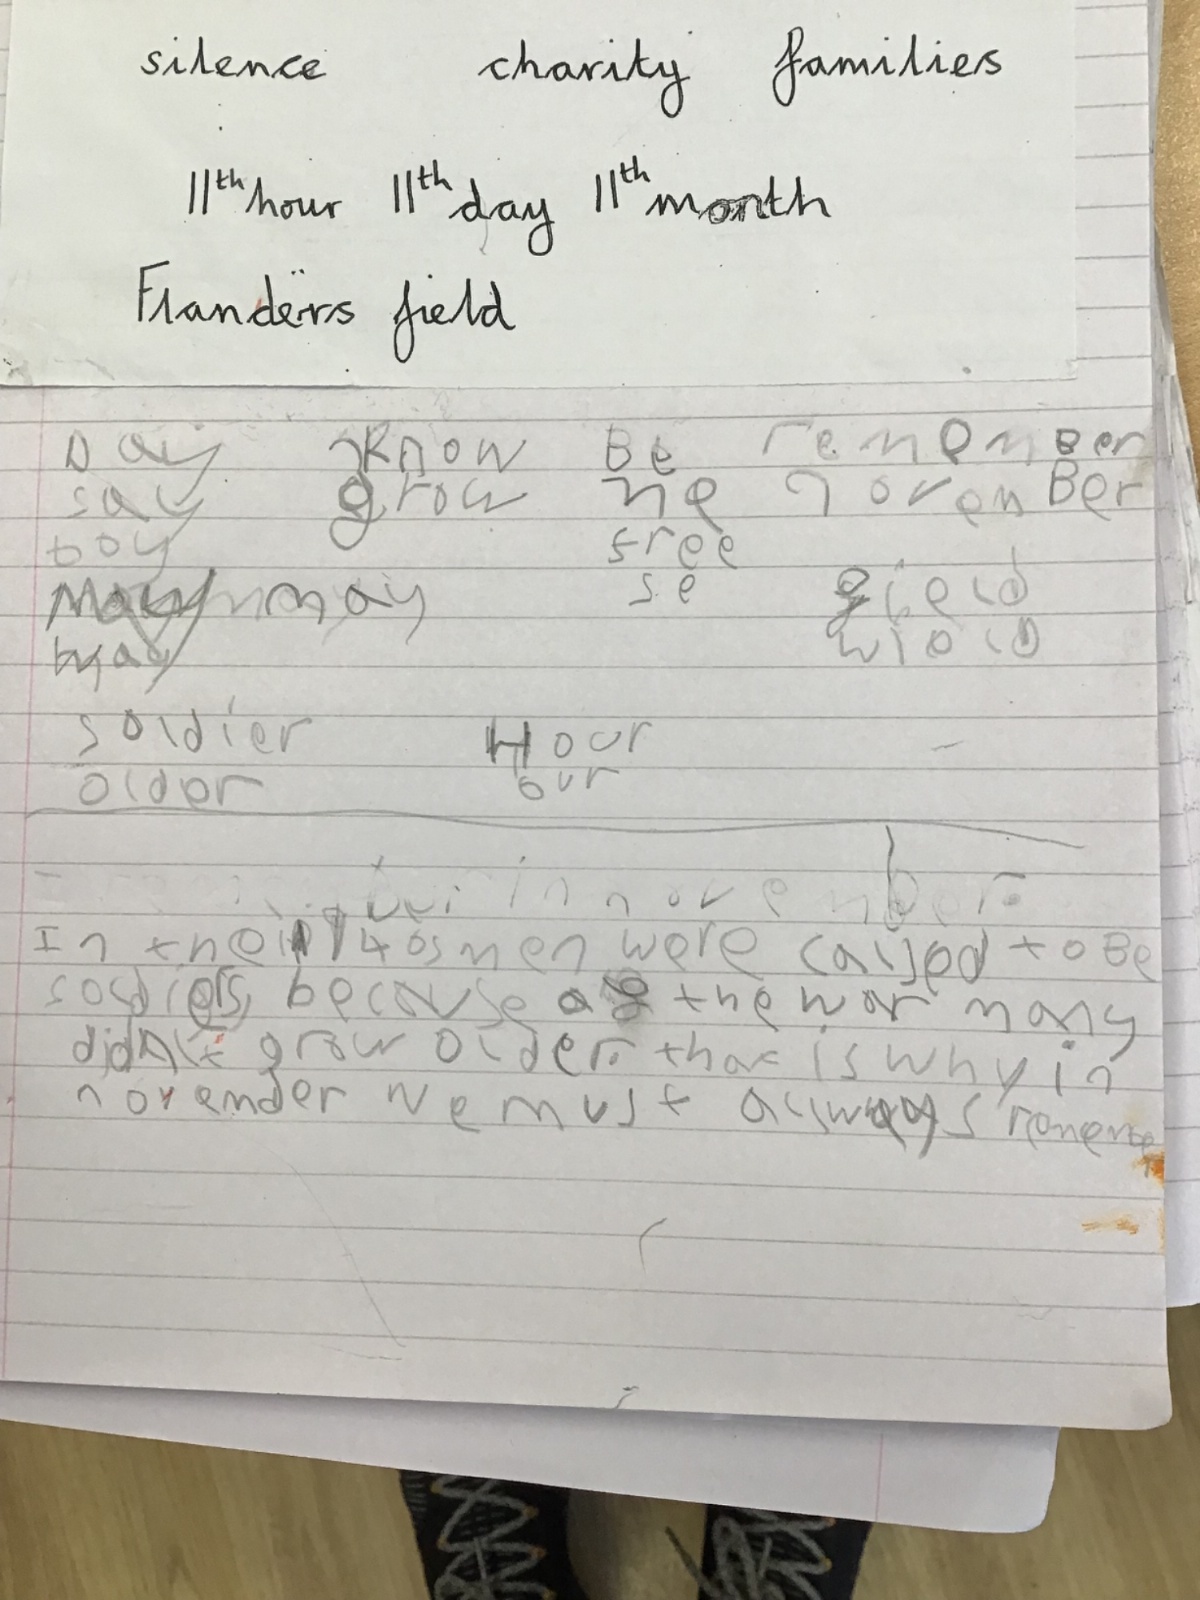 silence charity families
11th hour 11th day 11th month
Flanders field
Day know Be remember
say grow he november
boy free
may se field
may wield
soldier Hour
older our
in november
In the 1140s men were called to Be
because of the war many
didn't grow older. that is why in
novemder we must always rememe